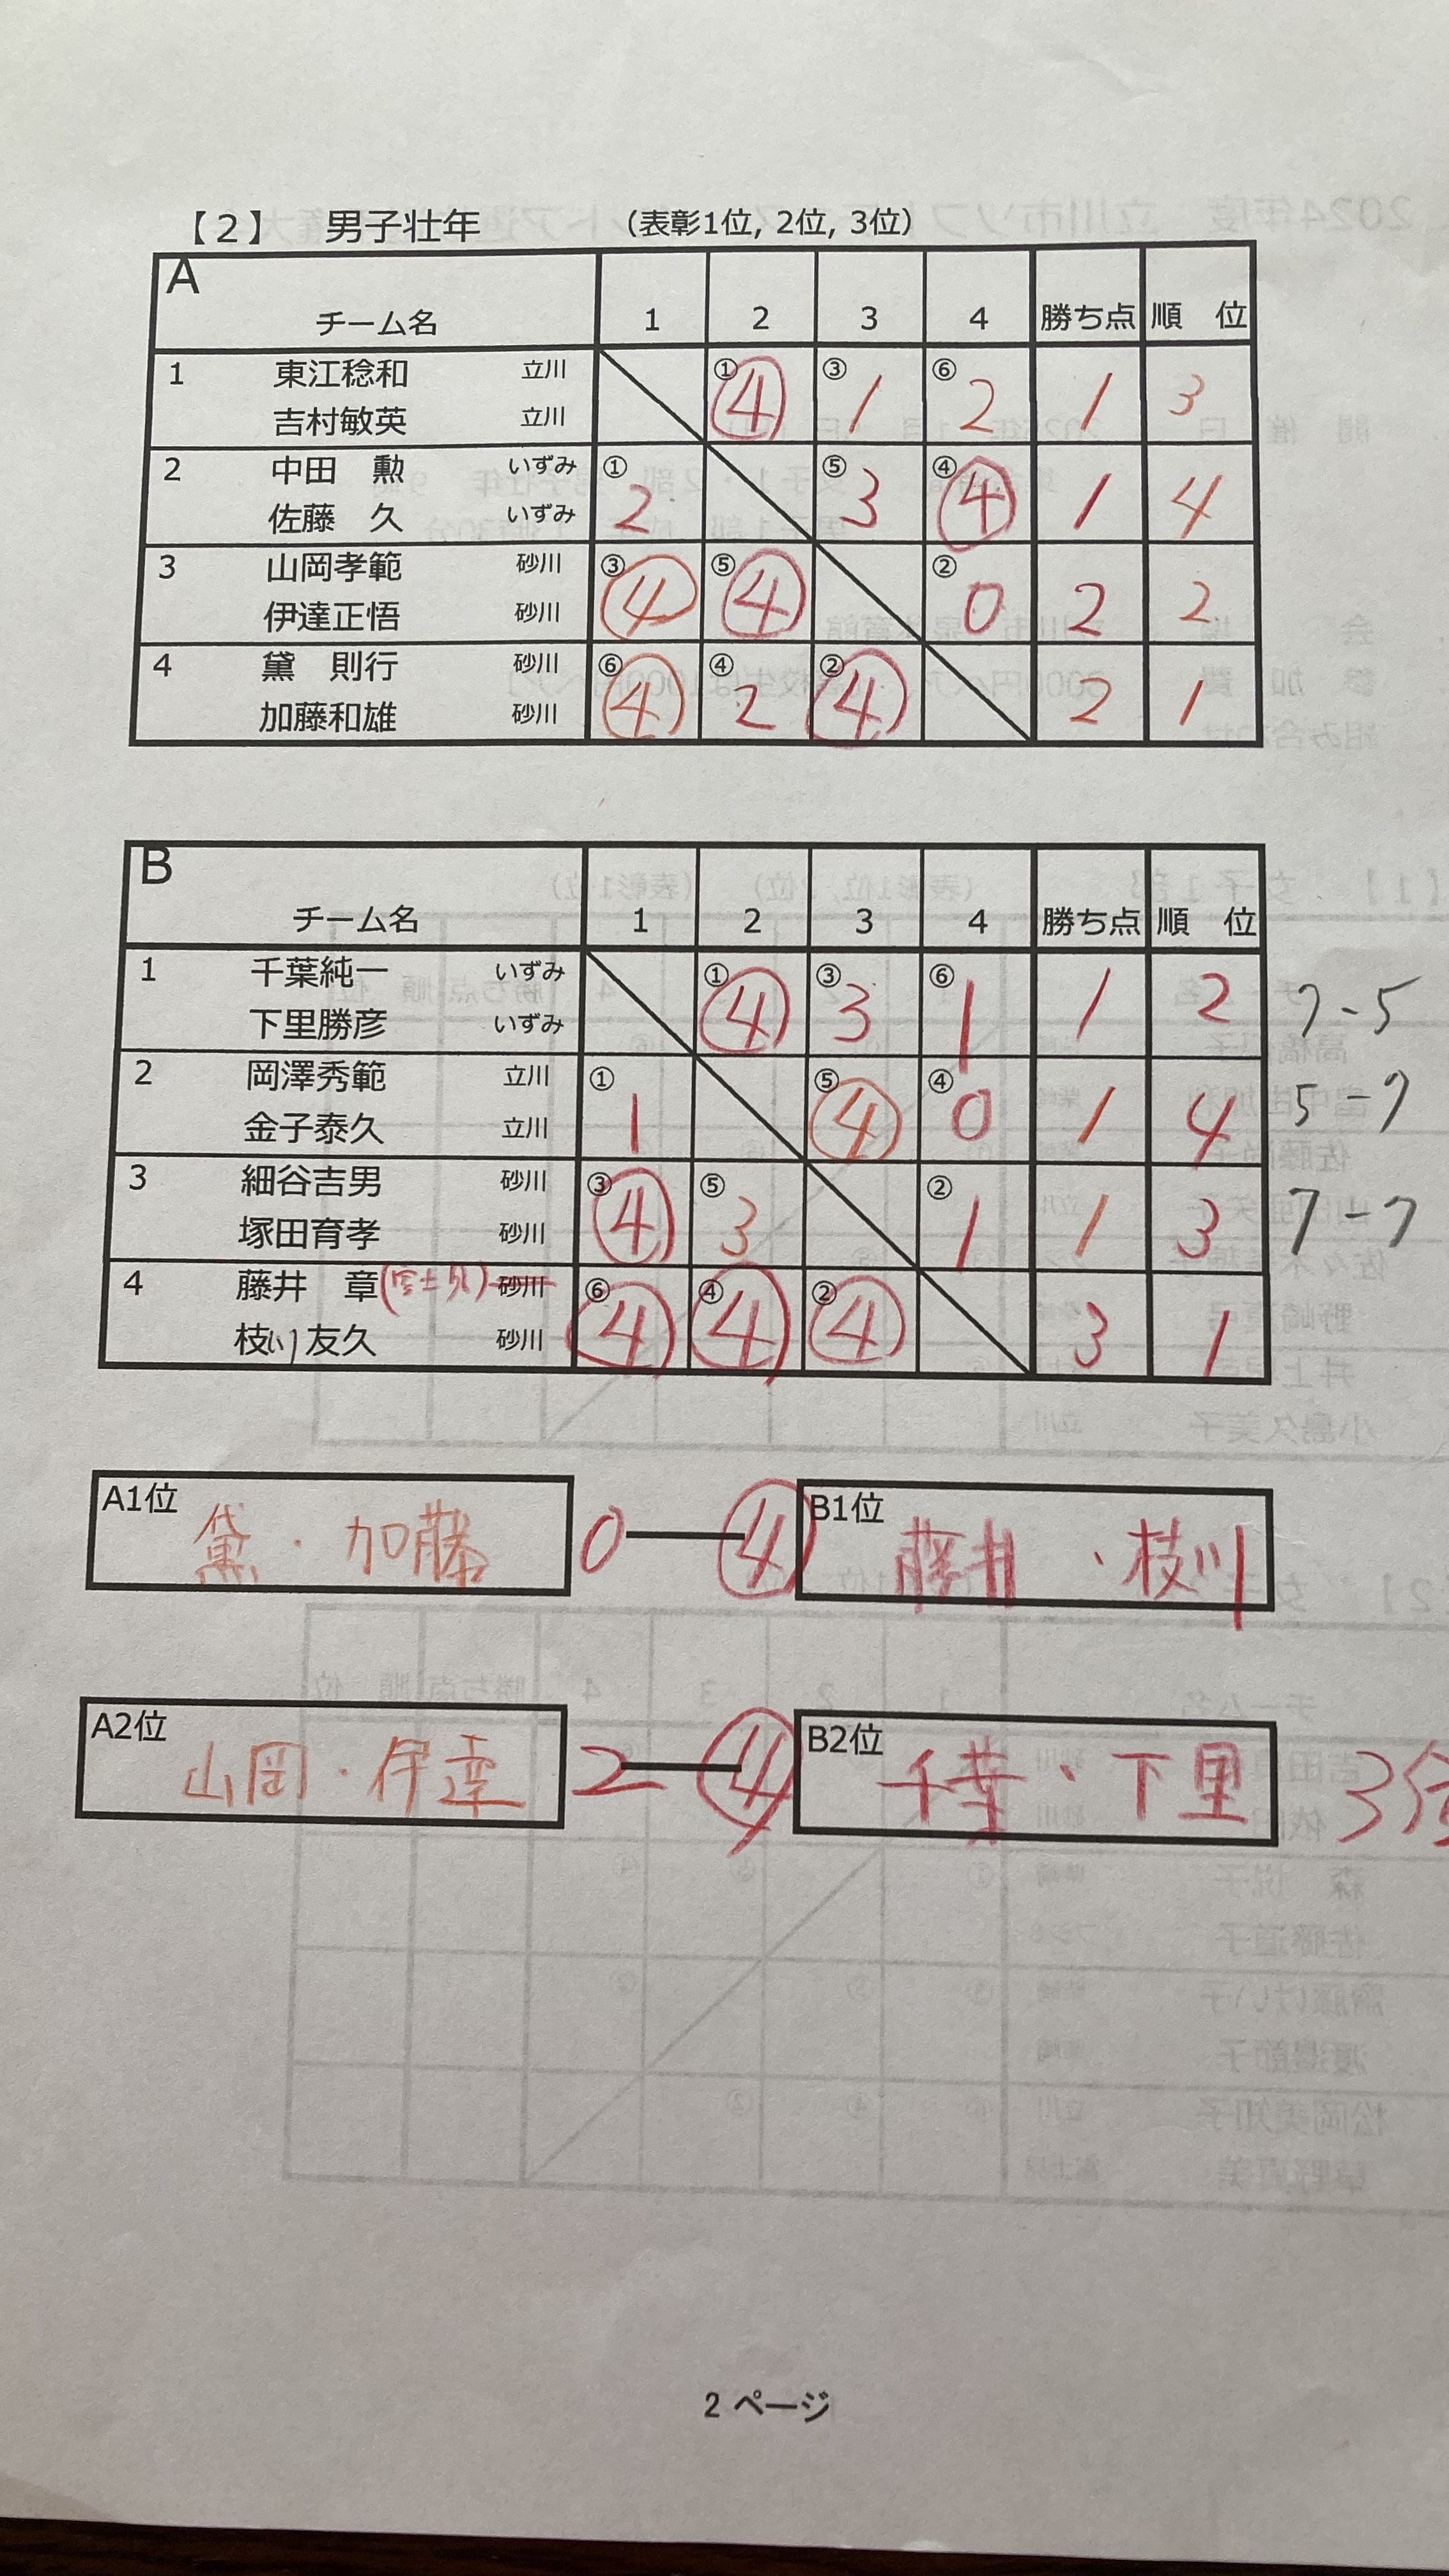 【2】 男子壮年 （表彰1位, 2位, 3位）
A
チーム名 1 2 3 4 勝ち点 順 位
1 東江稔和 立川 ① 4 ③ 1 ⑥ 2 1 3
吉村敏英 立川
2 中田 勲 いずみ ① 2 ⑤ 3 ④ 4 1 4
佐藤 久 いずみ
3 山岡孝範 砂川 ③ 4 ⑤ 4 ② 0 2 2
伊達正悟 砂川
4 黛 則行 砂川 ⑥ 4 ④ 2 ② 4 2 1
加藤和雄 砂川
B
チーム名 1 2 3 4 勝ち点 順 位
1 千葉純一 いずみ ① 4 ③ 3 ⑥ 1 1 2 7-5
下里勝彦 いずみ
2 岡澤秀範 立川 ① 1 ⑤ 4 ④ 0 1 4 5-7
金子泰久 立川
3 細谷吉男 砂川 ③ 4 ⑤ 3 ② 1 1 3 7-7
塚田育孝 砂川
4 藤井 章 砂川 ⑥ 4 ④ 4 ② 4 3 1
枝川友久 砂川
A1位 黛・加藤 0 — 4 B1位 藤井・枝川
A2位 山岡・伊達 2 — 4 B2位 千葉・下里 3位
2 ページ